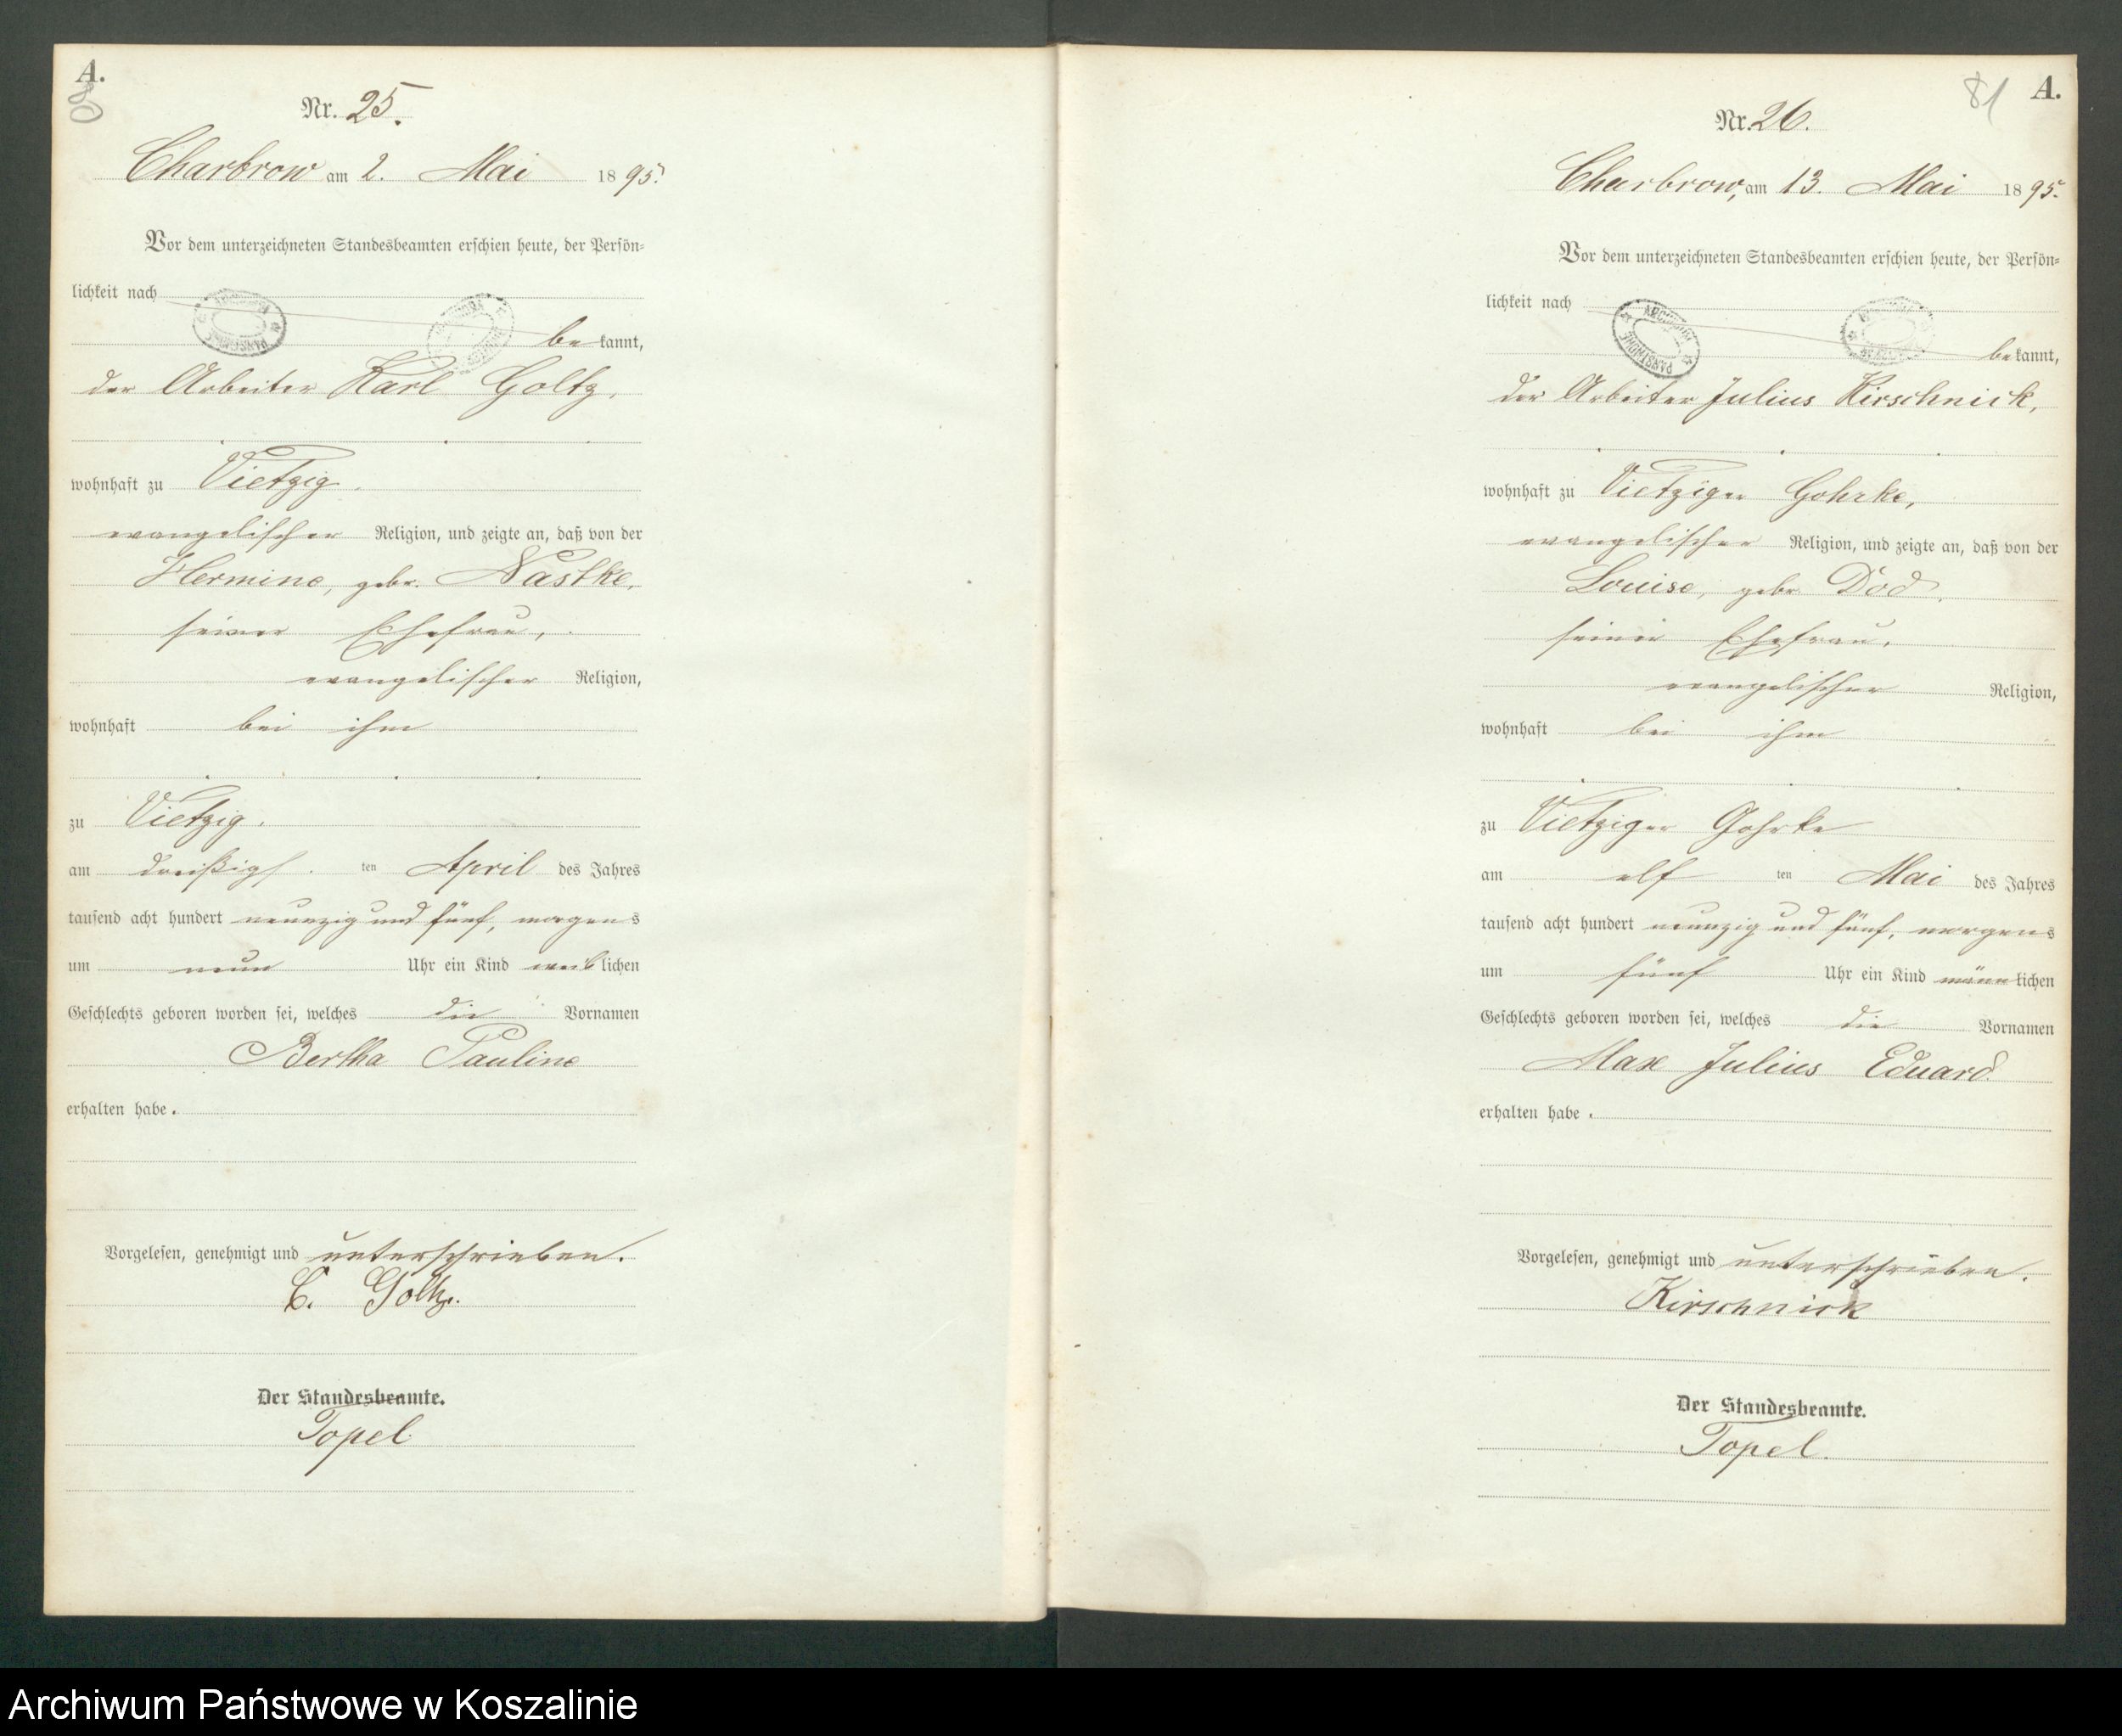 A.
80
Nr. 25.
Charbrow am 2. Mai 1895.
Vor dem unterzeichneten Standesbeamten erschien heute, der Persön-
lichkeit nach
bekannt,
der Arbeiter Karl Goltz,
wohnhaft zu Vietzig,
evangelischer Religion, und zeigte an, daß von der
Hermine, gebr. Nastke,
seiner Ehefrau,
evangelischer Religion,
wohnhaft bei ihm
zu Vietzig,
am dreißigs ten April des Jahres
tausend acht hundert neunzig und fünf, morgens
um neun Uhr ein Kind weiblichen
Geschlechts geboren worden sei, welches die Vornamen
Bertha Pauline
erhalten habe.
Vorgelesen, genehmigt und unterschrieben.
C. Goltz.
Der Standesbeamte.
Topel.
A.
81
Nr. 26.
Charbrow, am 13. Mai 1895.
Vor dem unterzeichneten Standesbeamten erschien heute, der Persön-
lichkeit nach
ARCHIWUM PAŃSTWOWE
bekannt,
der Arbeiter Julius Kirschnick,
wohnhaft zu Vietziger Gohrke,
evangelischer Religion, und zeigte an, daß von der
Louise, gebr Dod,
seiner Ehefrau,
evangelischer Religion,
wohnhaft bei ihm
zu Vietziger Gohrke
am elf ten Mai des Jahres
tausend acht hundert neunzig und fünf, morgens
um fünf Uhr ein Kind männlichen
Geschlechts geboren worden sei, welches die Vornamen
Max Julius Eduard
erhalten habe.
Vorgelesen, genehmigt und unterschrieben.
Kirschnick
Der Standesbeamte.
Topel.
Archiwum Państwowe w Koszalinie